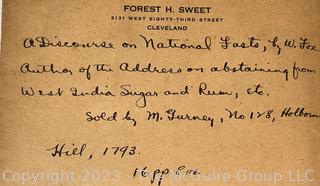 FOREST H. SWEET
2131 WEST EIGHTY-THIRD STREET
CLEVELAND
A Discourse on National Fasts, by W. Fox.
Author of the Address on abstaining from
West India Sugar and Rum, etc.
Sold by M. Gurney, No 128, Holborn
Hill, 1793.
16 pp. 8vo.
Copyright 2023 - McGuire Group LLC